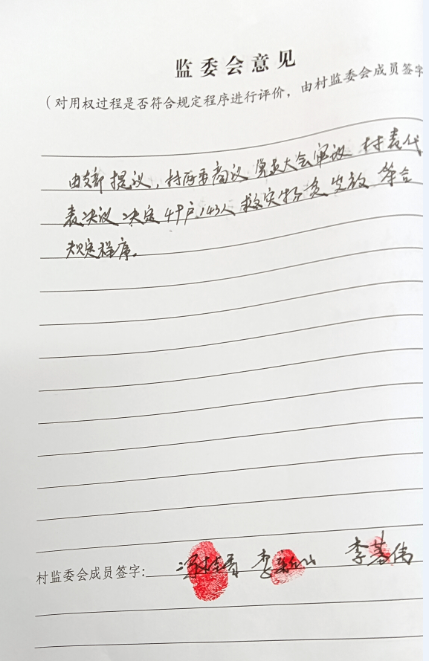 监委会意见
（对用权过程是否符合规定程序进行评价，由村监委会成员签字
由支部提议，村两委商议 党员大会审议 村民代
表决议 决定49户143人救灾物资发放 符合
规定程序。
村监委会成员签字： 李 李